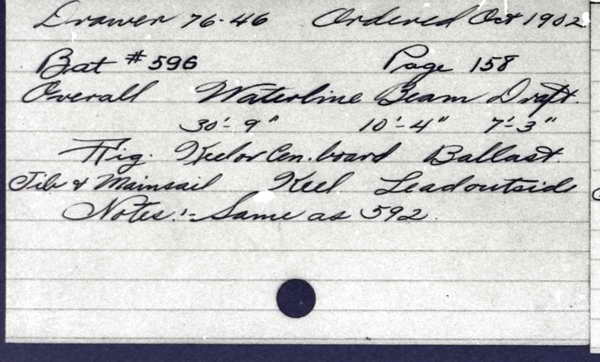 Drawer 76-46 Ordered Oct 1902
Bat # 596 Page 158
Overall Waterline Beam Draft.
30'-9" 10'-4" 7'-3"
Rig. Keel or Cen. board Ballast
Jib & Mainsail Keel Lead outside
Notes:- Same as 592.